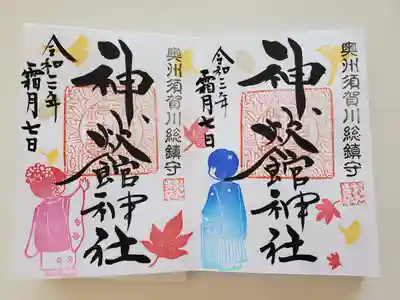 奥州須賀川総鎮守
神炊館神社
令和二年
霜月七日
奥州須賀川総鎮守
神炊館神社
令和二年
霜月七日